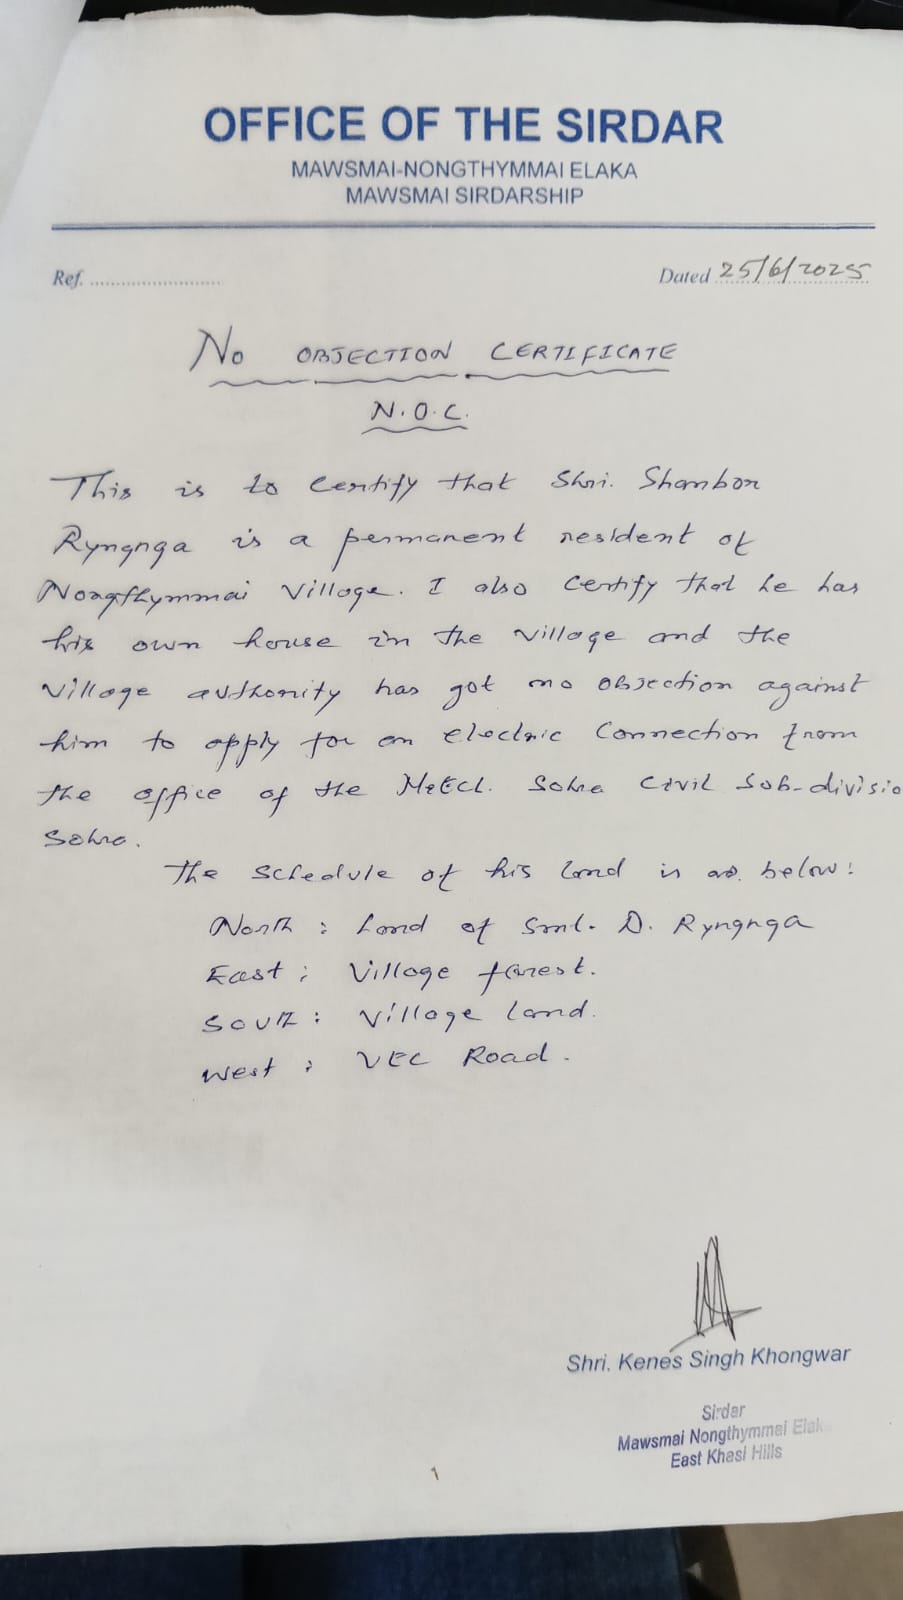 OFFICE OF THE SIRDAR
MAWSMAI-NONGTHYMMAI ELAKA
MAWSMAI SIRDARSHIP
Ref. ........................
Dated 25/6/2025
No OBJECTION CERTIFICATE
N.O.C.
This is to certify that Shri. Shanbor
Ryngnga is a permanent resident of
Nongthymmai Village. I also certify that he has
his own house in the village and the
village authority has got no objection against
him to apply for an electric connection from
the office of the MeECL. Sohra Civil Sub-divisio
Sohra.
The schedule of his land is as below:
North : Land of Smt. D. Ryngnga
East : Village forest.
South : Village land.
West : VEC Road.
Shri. Kenes Singh Khongwar
Sirdar
Mawsmai Nongthymmai Elaka
East Khasi Hills